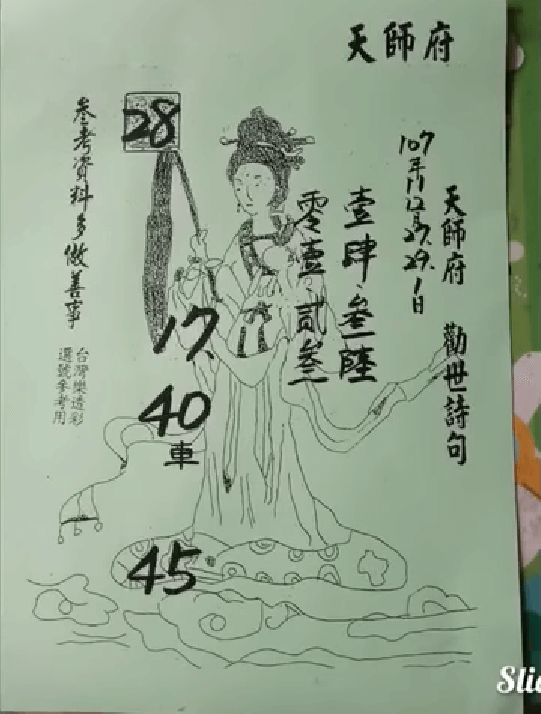 天師府
天師府 勸世詩句
107年11.12月27.29.1日
壹肆.叁陸
零壹.貳叁
28
17.
40
車
45
參考資料多做善事
台灣樂透彩
選號參考用